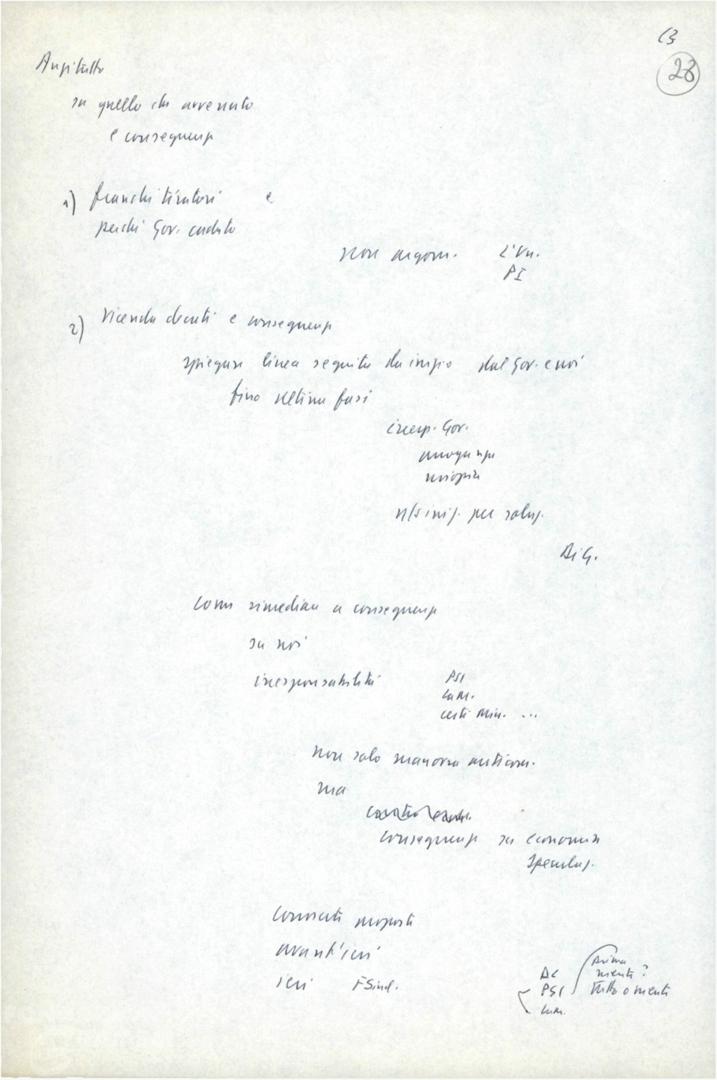 B
28
Anzitutto
su quello che avvenuto
e conseguenze
1) franchi tiratori e
perché Gov. caduto
non argom. L'Un.
PI
2) Vicenda decreti e conseguenze
spiegare linea seguita da inizio dal Gov. e noi
fino ultime fasi
incap. Gov.
arroganza
miopia
n/s iniz. per soluz.
Di G.
Come rimediare a conseguenze
su noi
irresponsabilità PSI
La M.
certi Min. ...
non solo manovra anticom.
ma
conseguenze su economia
speculaz.
Concrete proposte
avant'ieri
ieri FSind.
DC
PSI
La M.
prima
niente?
Tutto o niente